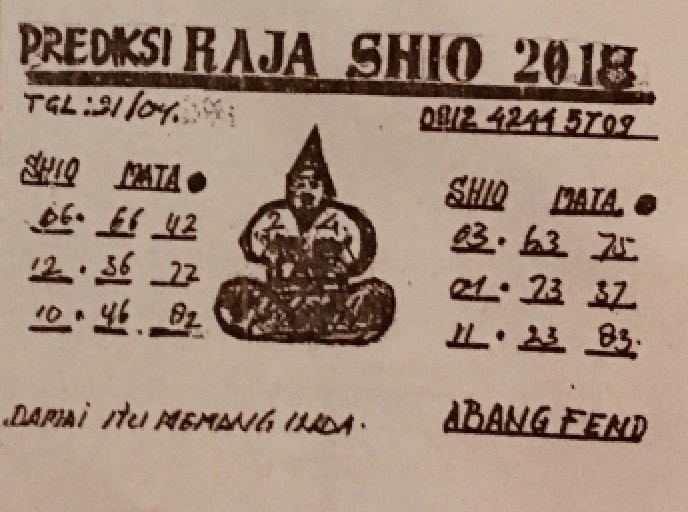 PREDIKSI RAJA SHIO 2018
TGL: 21/04.
0812 4244 5709
SHIO MATA ●
06. 66 42
12. 36 72
10. 46 82
2 4
SHIO MATA ●
03. 63 75
01. 73 37
11. 23 83.
DAMAI ITU MEMANG INDA.
ABANG FEND